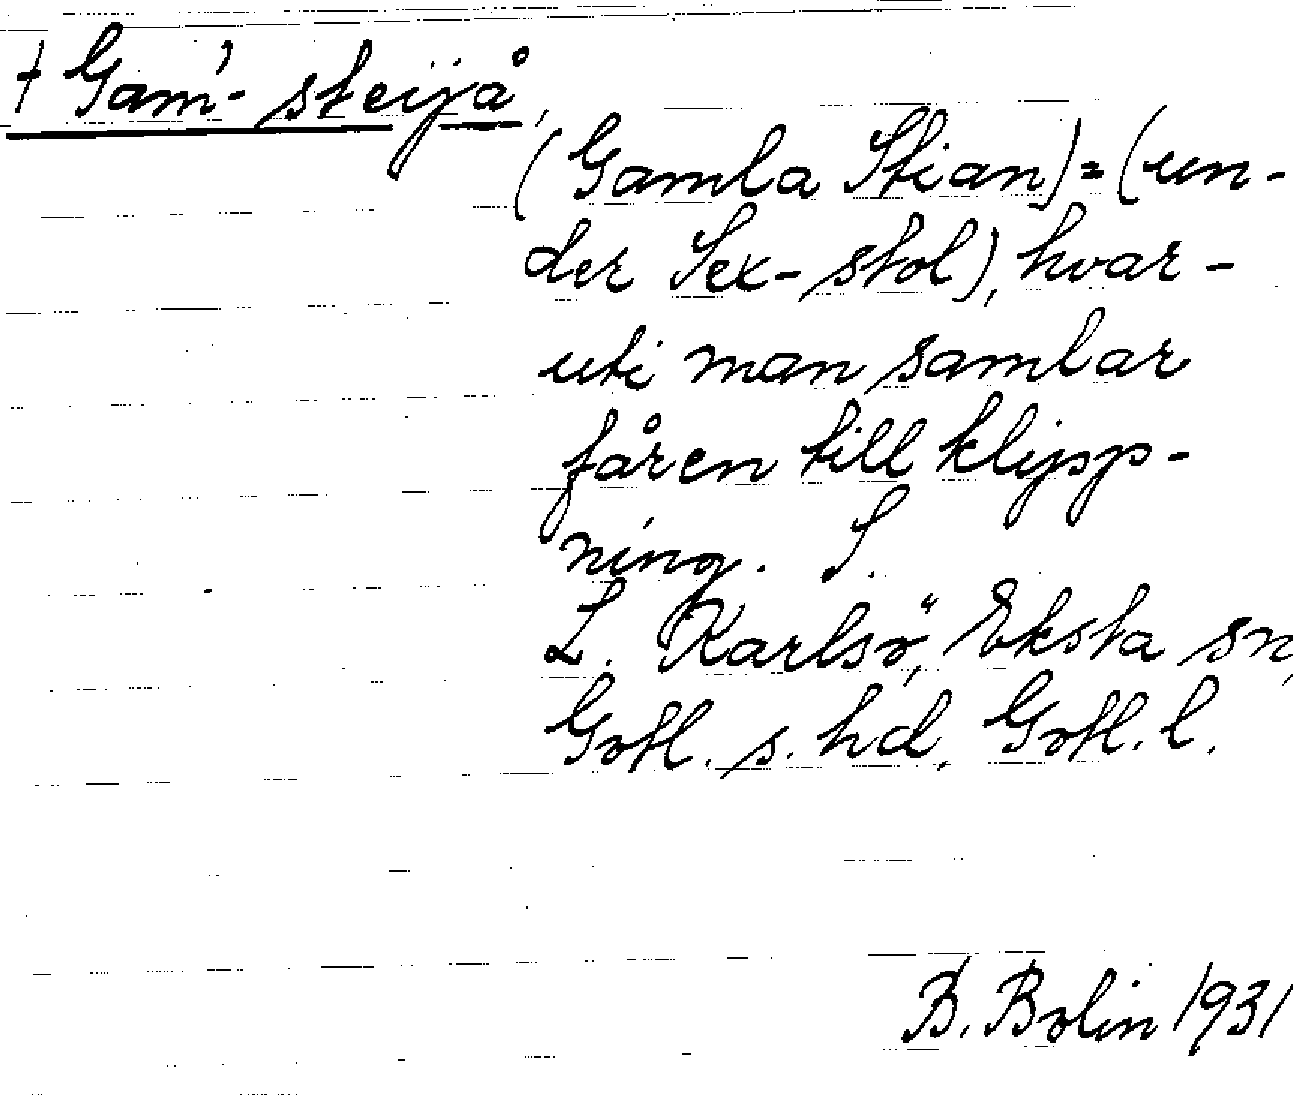 + Gam'- steijå,
(Gamla Stian) = (un-
der Sex-stol), hvar-
uti man samlar
fåren till klipp-
ning. S.
L. Karlsö, Eksta sn,
Gotl. s. hd. Gotl. l.
B. Bolin 1931